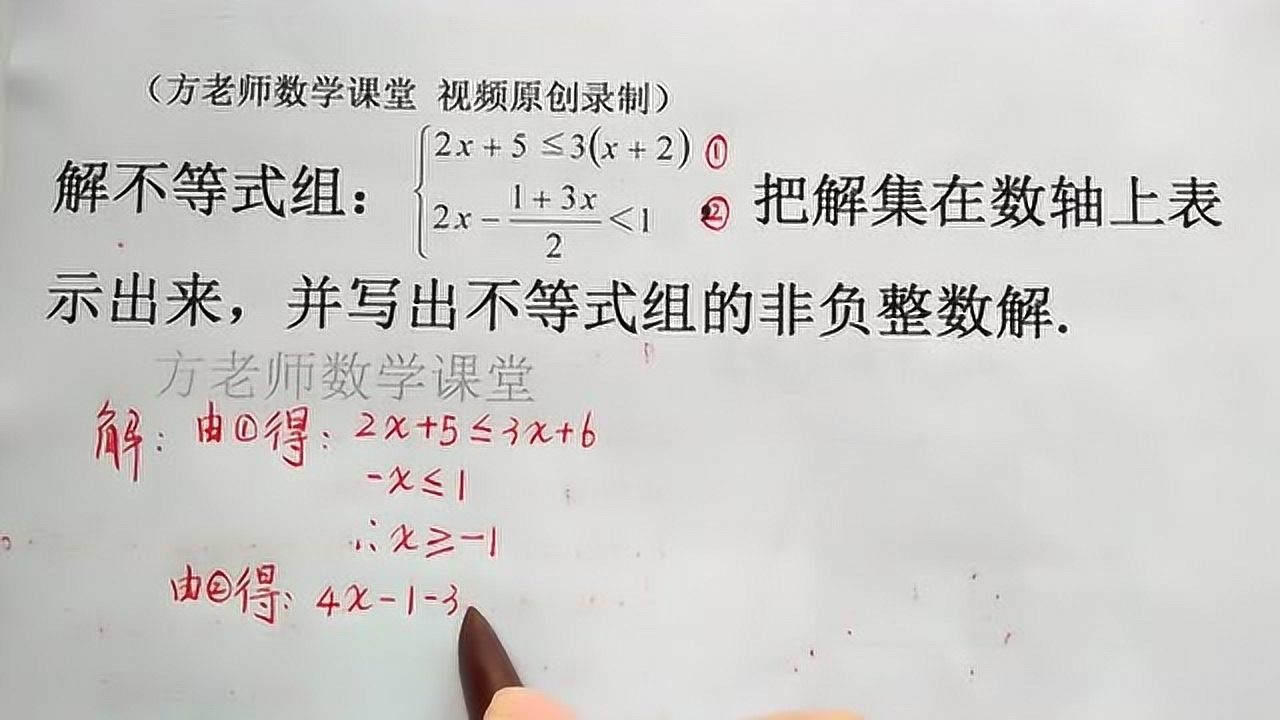 （方老师数学课堂 视频原创录制）
解不等式组：{2x+5≤3(x+2) ① 2x-(1+3x)/2<1 ② 把解集在数轴上表
示出来，并写出不等式组的非负整数解.
方老师数学课堂
解：由①得：2x+5≤3x+6
-x≤1
∴x≥-1
由②得：4x-1-3